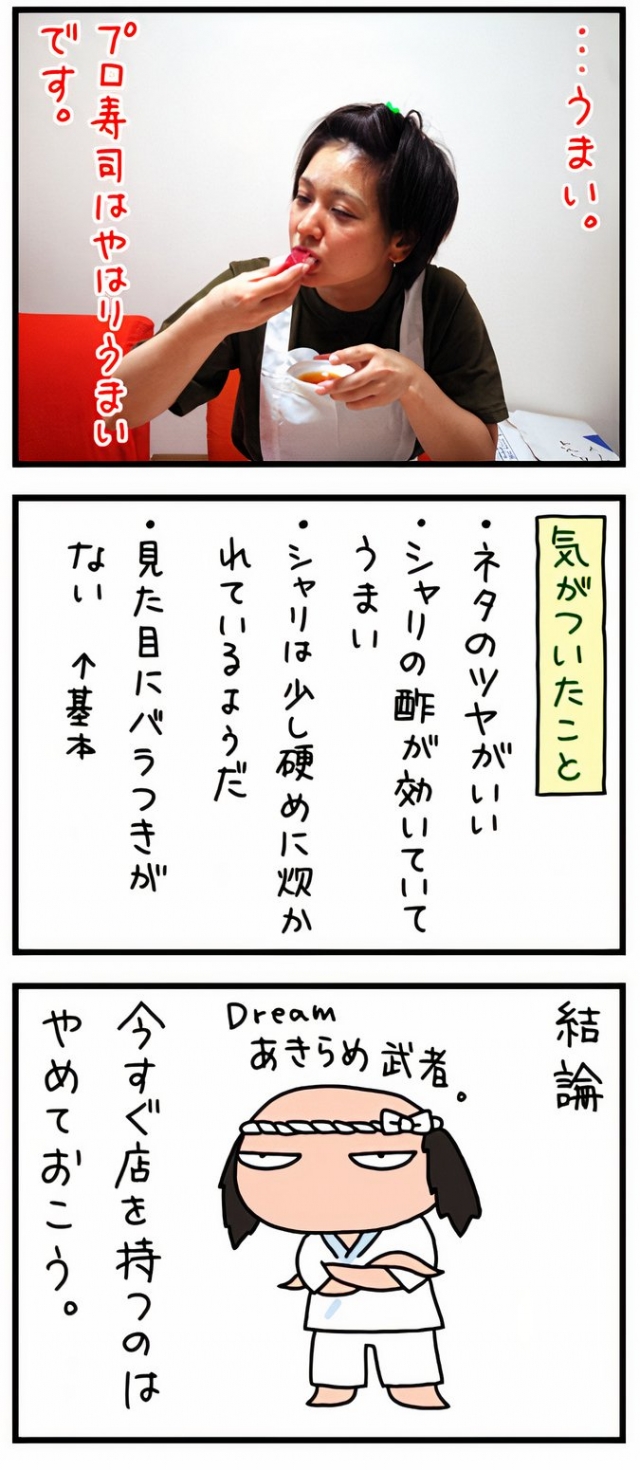 …うまい。
プロ寿司はやはりうまい
です。
気がついたこと
・ネタのツヤがいい
・シャリの酢が効いていて
うまい
・シャリは少し硬めに炊か
れているようだ
・見た目にバラつきが
ない ↑基本
結論
Dream
あきらめ武者。
今すぐ店を持つのは
やめておこう。